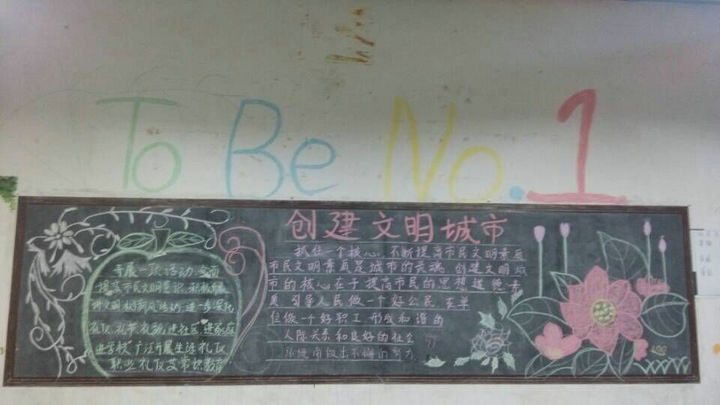 To Be No.1
创建文明城市
开展一项活动,全面
提高市民文明意识,积极
讲文明 树新风活动,进一步深化
礼仪、礼节、礼貌,进社区"进家庭
进学校"广泛开展生活礼仪
职业礼仪 等常识教育
抓住一个核心,不断提高市民文明素质
市民文明素质是城市的灵魂 创建文明城
市的核心在于提高市民的思想道德素
质 引导人民做一个好公民 在单
位做一个好职工 形成和谐的
人际关系和良好的社会
做出不懈的努力